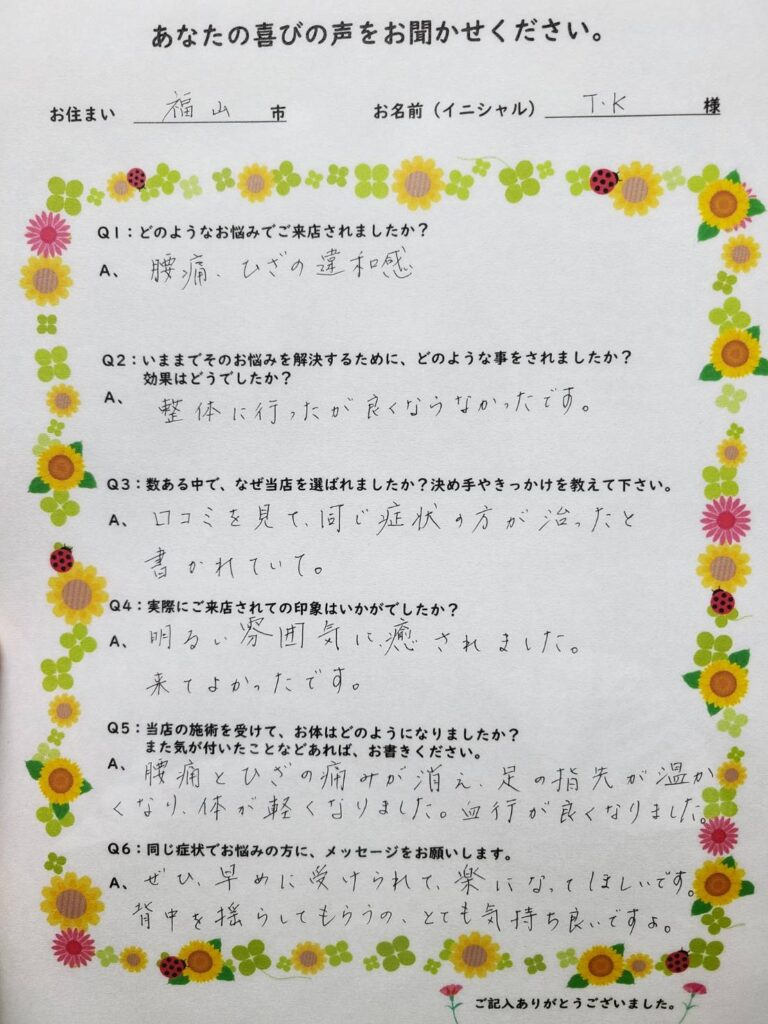 あなたの喜びの声をお聞かせください。
お住まい 福山 市 お名前（イニシャル） T.K 様
Q1：どのようなお悩みでご来店されましたか？
A、 腰痛、ひざの違和感
Q2：いままでそのお悩みを解決するために、どのような事をされましたか？
効果はどうでしたか？
A、 整体に行ったが良くならなかったです。
Q3：数ある中で、なぜ当店を選ばれましたか？決め手やきっかけを教えて下さい。
A、 口コミを見て、同じ症状の方が治ったと
書かれていて。
Q4：実際にご来店されての印象はいかがでしたか？
A、 明るい雰囲気に癒されました。
来てよかったです。
Q5：当店の施術を受けて、お体はどのようになりましたか？
また気が付いたことなどあれば、お書きください。
A、 腰痛とひざの痛みが消え、足の指先が温か
くなり、体が軽くなりました。血行が良くなりました。
Q6：同じ症状でお悩みの方に、メッセージをお願いします。
A、 ぜひ、早めに受けられて、楽になってほしいです。
背中を揺らしてもらうの、とても気持ち良いですよ。
ご記入ありがとうございました。